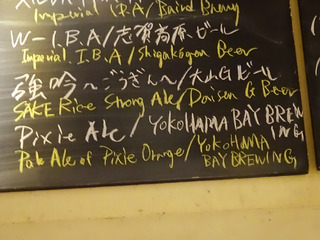 Imperial IPA / Baird Brewing
W-I.B.A / 志賀高原ビール
Imperial. I.B.A / Shigakogen Beer
強吟〜ごうぎん〜 / 大山Gビール
SAKE Rice Strong Ale / Daisen G Beer
Pixie Ale / YOKOHAMA BAY BREWING
Pale Ale of Pixie Orange / YOKOHAMA
BAY BREWING